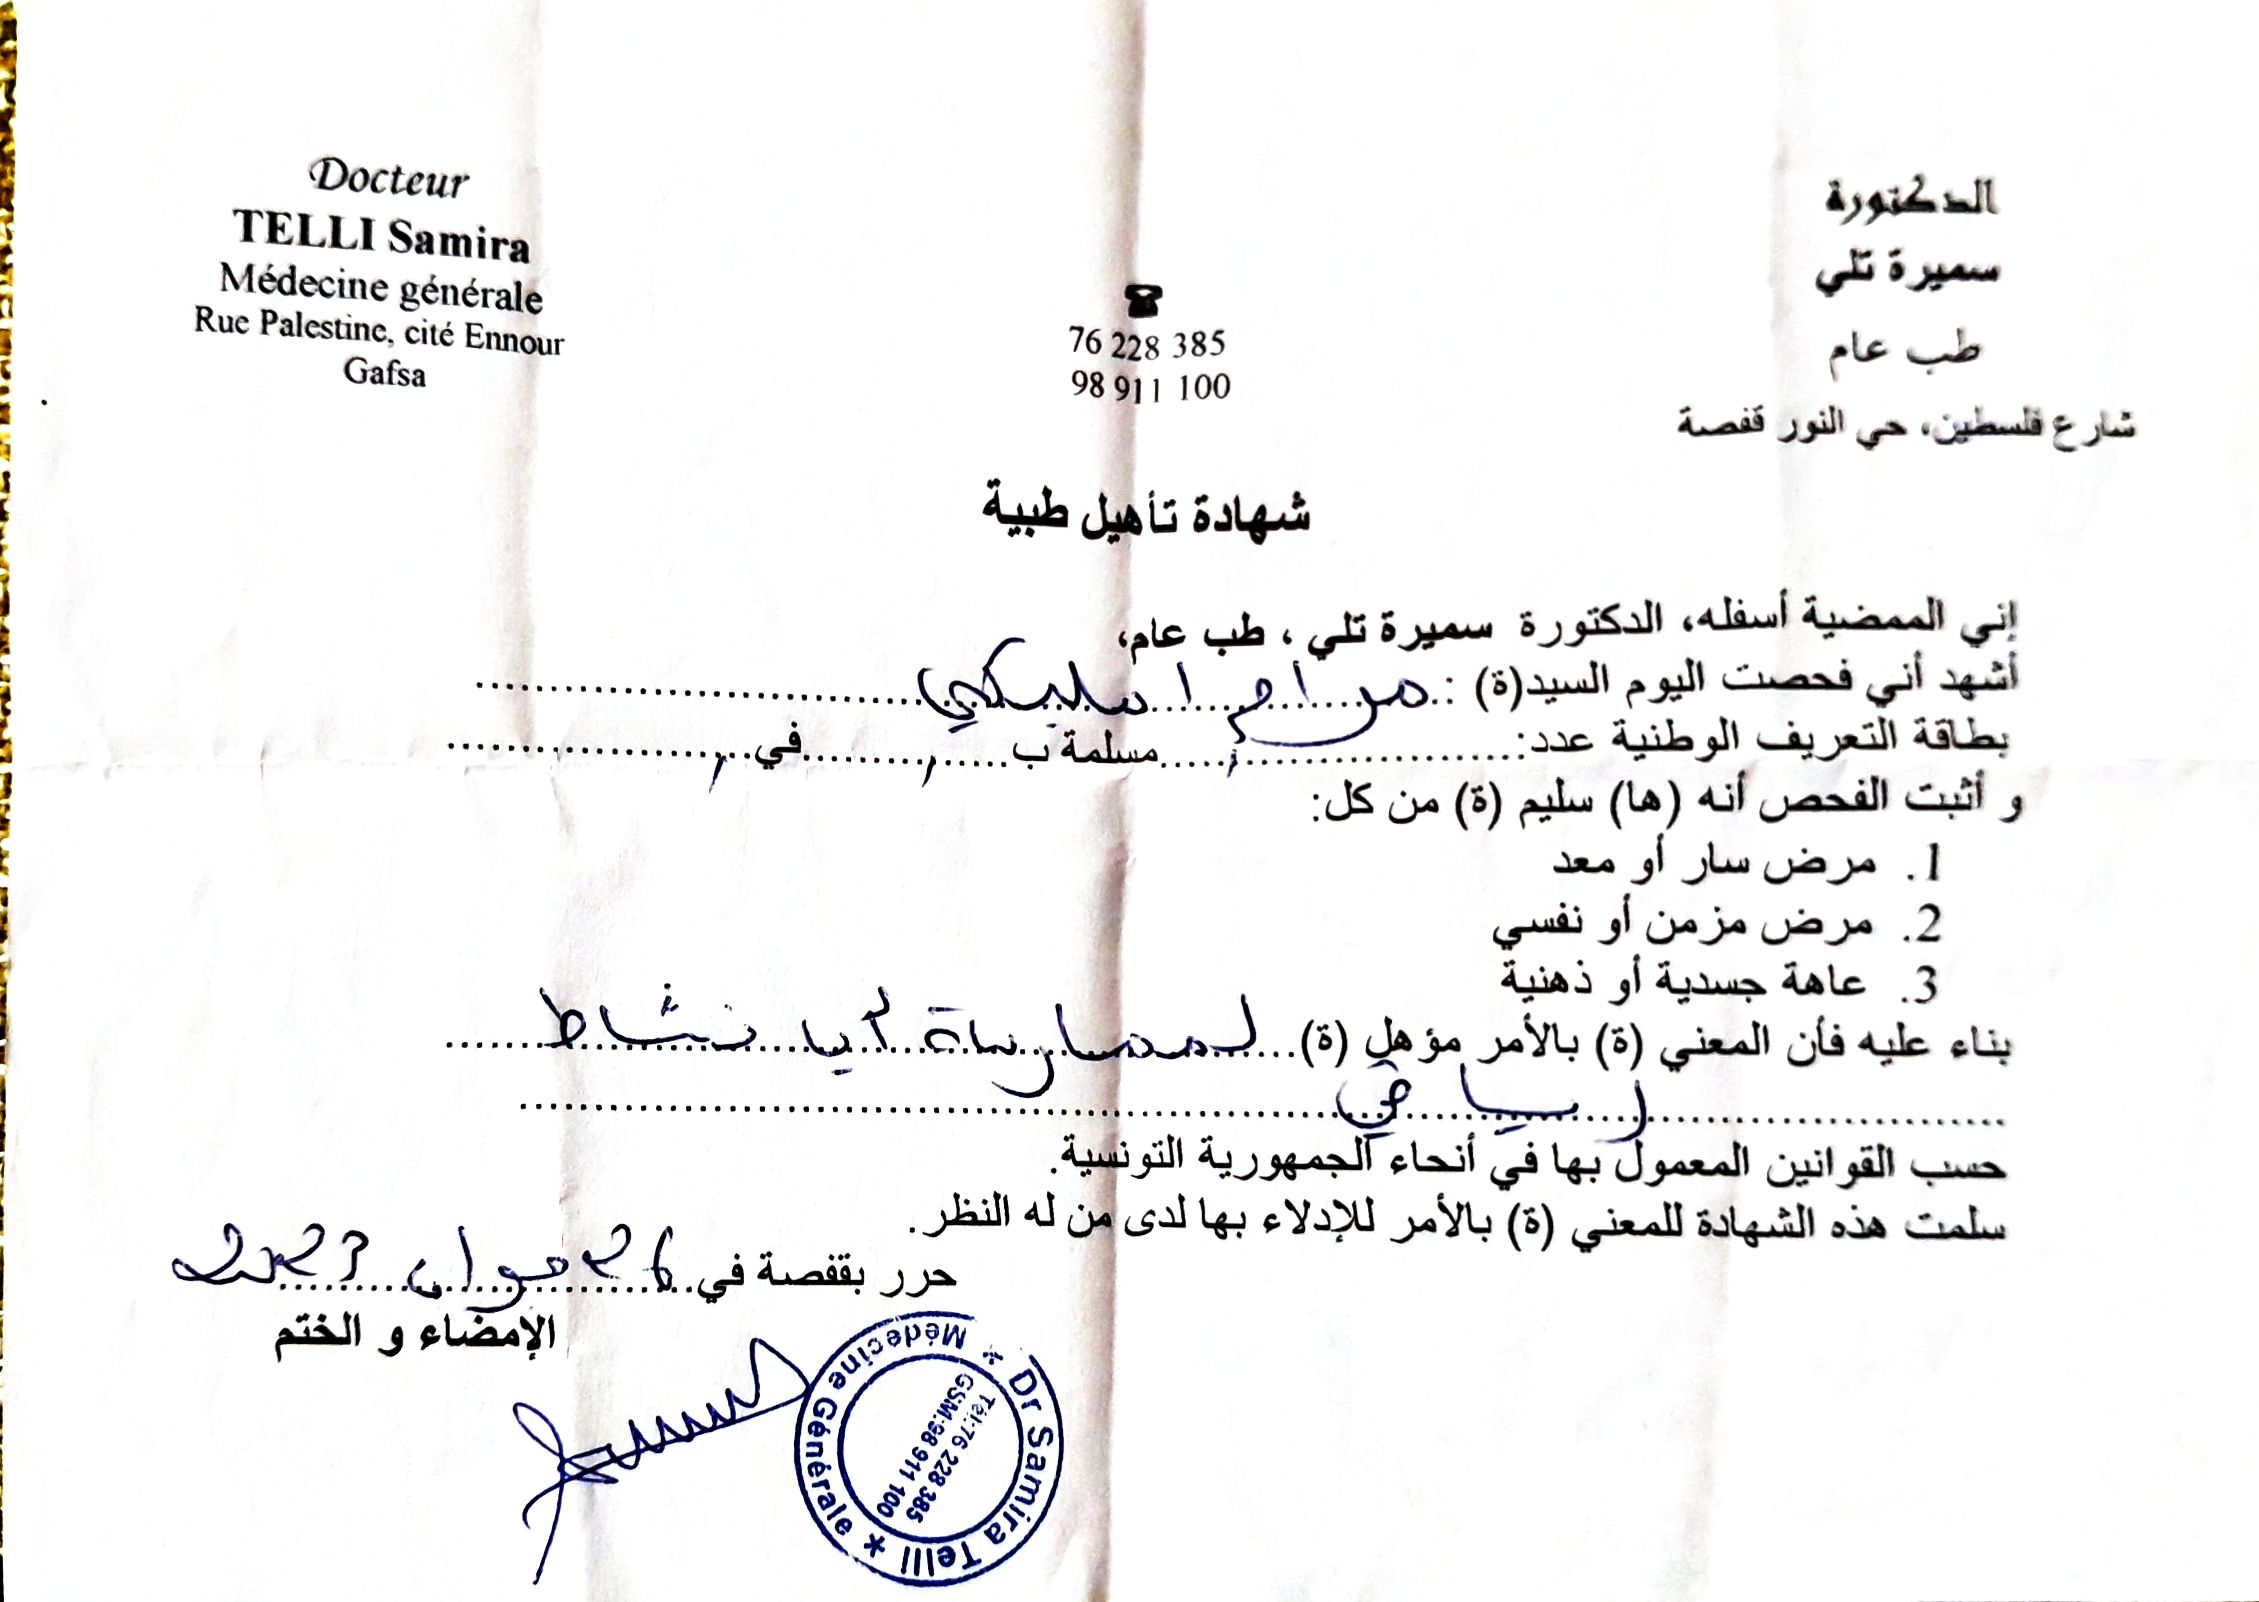 Docteur
TELLI Samira
Médecine générale
Rue Palestine, cité Ennour
Gafsa
76 228 385
98 911 100
الدكتورة
سميرة تلي
طب عام
شارع فلسطين، حي النور قفصة
شهادة تأهيل طبية
إني الممضية أسفله، الدكتورة سميرة تلي ، طب عام،
أشهد أني فحصت اليوم السيد(ة) :
بطاقة التعريف الوطنية عدد:.......... مسلمة ب..........في..........
و أثبت الفحص أنه (ها) سليم (ة) من كل:
1. مرض سار أو معد
2. مرض مزمن أو نفسي
3. عاهة جسدية أو ذهنية
بناء عليه فأن المعني (ة) بالأمر مؤهل (ة) لممارسة أي نشاط
رياضي
حسب القوانين المعمول بها في أنحاء الجمهورية التونسية.
سلمت هذه الشهادة للمعني (ة) بالأمر للإدلاء بها لدى من له النظر.
حرر بقفصة في 26 جوان 2023
الإمضاء و الختم
Dr Samira Telli * Médecine Générale *
Tél:76 228 385
GSM:98 911 100